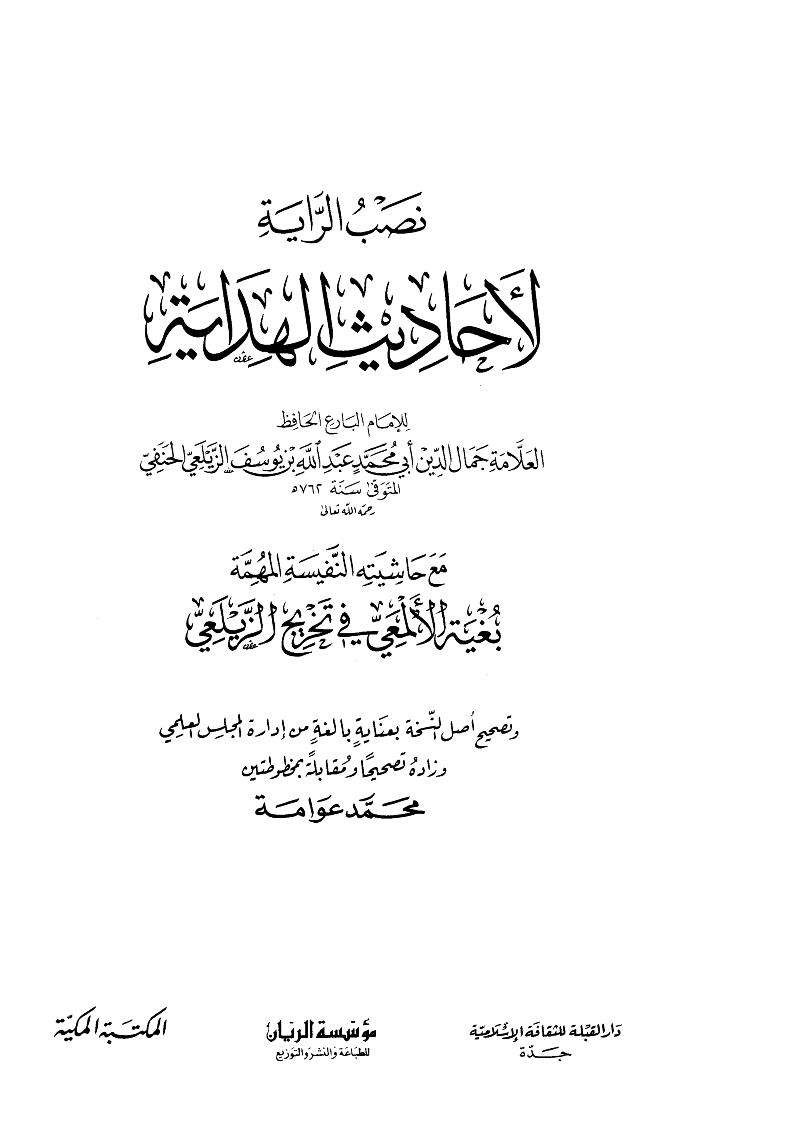 نَصَبُ الرَّايَةِ
لأَحَادِيثِ الهِدَايَةِ
للإمام البارع الحافظ
العلَّامَة جَمَال الدِّين أبي مُحَمَّدٍ عَبدِ اللَّهِ بن يُوسُفَ الزَّيْلَعيّ الحَنَفِيّ
المتوفى سَنَة ٧٦٢ هـ
رحمه الله تعالى
مَعَ حَاشِيَتِه النَّفيسَةِ المُهِمَّة
بُغْيَة الأَلْمَعيّ في تَخْرِيج الزَّيْلَعِيّ
وتصحيح أصل النّسخة بعنايةٍ بالغةٍ من إدارة المجلس العلمي
وزادهُ تصحيحًا ومُقابلةً بمخطوطتين
محمَّد عوامة
دَار القبلة للثقافة الإسلاميّة
جَدّة
مؤسّسة الريّان
للطباعة والنشر والتوزيع
المكتبة المكيّة